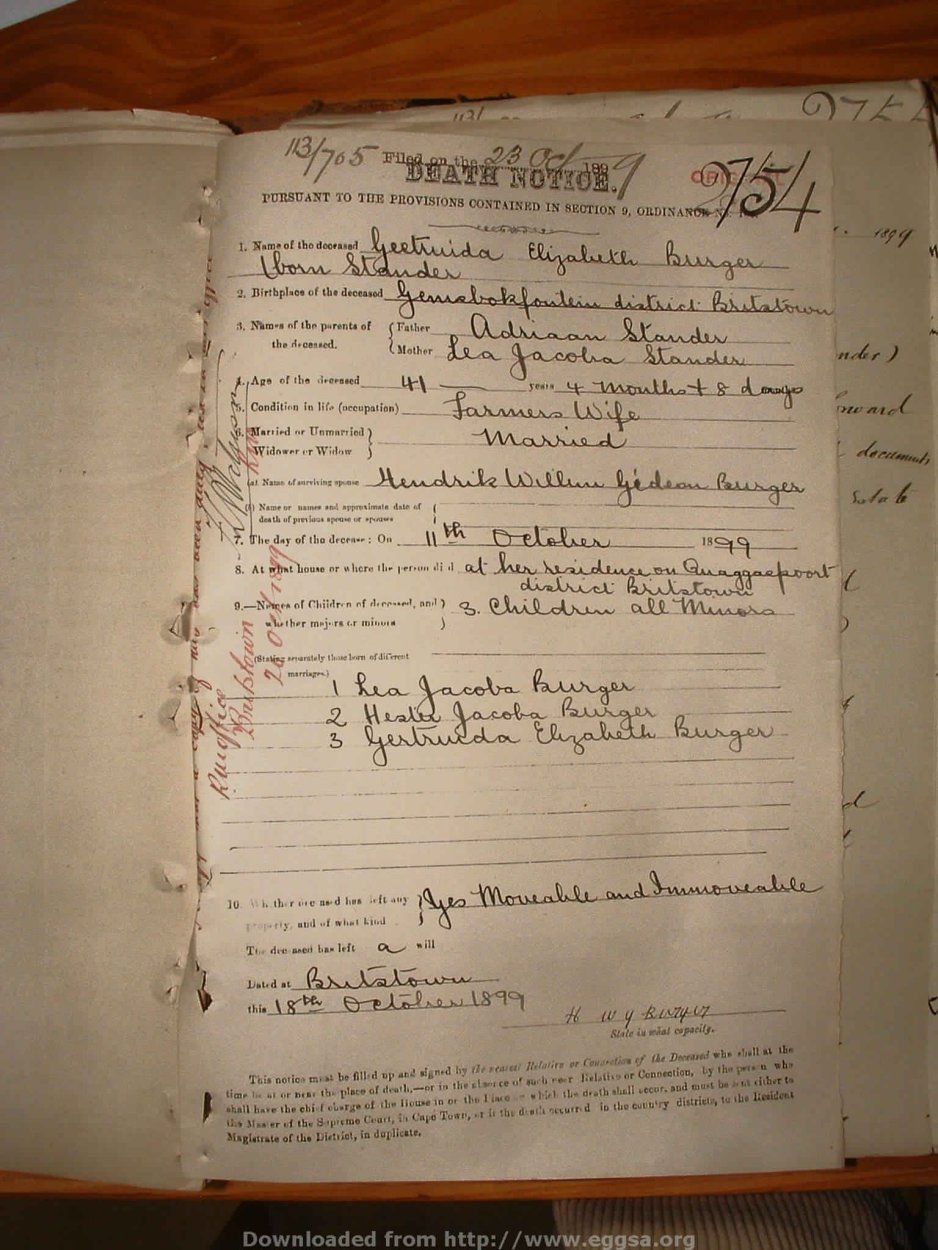 113/705 Filed on the 23 Oct 1899
DEATH NOTICE.
2754
PURSUANT TO THE PROVISIONS CONTAINED IN SECTION 9, ORDINANCE
1. Name of the deceased Geetruida Elizabeth Burger
(born Stander
2. Birthplace of the deceased Gemsbokfontein district Britstown
3. Names of the parents of the deceased. { Father Adriaan Stander
Mother Lea Jacoba Stander
4. Age of the deceased 41 years 4 months + 8 days
5. Condition in life (occupation) Farmers Wife
6. Married or Unmarried } Married
Widower or Widow
(a) Name of surviving spouse Hendrik Willem Gideon Burger
(b) Name or names and approximate date of
death of previous spouse or spouses
7. The day of the decease: On 11th October 1899
8. At what house or where the person died at her residence on Quaggaspoort
district Britstown
9.—Names of Children of deceased, and } 3. Children all Minors
whether majors or minors
(Stating separately those born of different
marriages.)
1 Lea Jacoba Burger
2 Hester Jacoba Burger
3 Gertruida Elizabeth Burger
10. Whether deceased has left any } Yes Moveable and Immoveable
property, and of what kind
The deceased has left a will
Dated at Britstown
this 18th October 1899
H W G Burger
State in what capacity.
This notice must be filled up and signed by the nearest Relative or Connection of the Deceased who shall at the
time be at or near the place of death,—or in the absence of such near Relative or Connection, by the person who
shall have the chief charge of the House in or the Place on which the death shall occur, and must be sent either to
the Master of the Supreme Court, in Cape Town, or if the death occurred in the country districts, to the Resident
Magistrate of the District, in duplicate.
Britstown
20 Oct 1899
1899
documents
Downloaded from http://www.eggsa.org